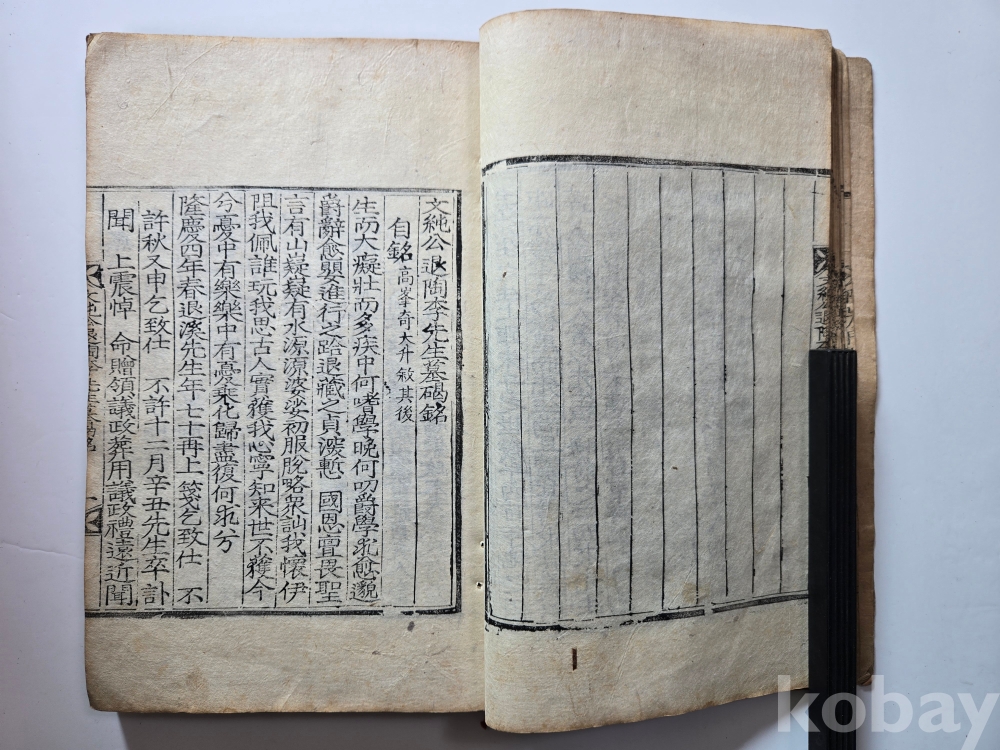 文純公退陶李先生墓碣銘
自銘 高峯奇大升敘其後
生而大癡壯而多疾中何嗜學晚何叨爵學求愈邈
爵辭愈嬰進行之跲退藏之貞深慙 國恩亶畏聖
言有山嶷嶷有水源源婆娑初服脫略衆訕我懷伊
阻我佩誰玩我思古人實獲我心寧知來世不獲今
兮憂中有樂樂中有憂乘化歸盡復何求兮
隆慶四年春退溪先生年七十再上箋乞致仕 不
許秋又申乞致仕 不許十二月辛丑先生卒訃
聞 上震悼 命贈領議政葬用議政禮遠近聞
kobay